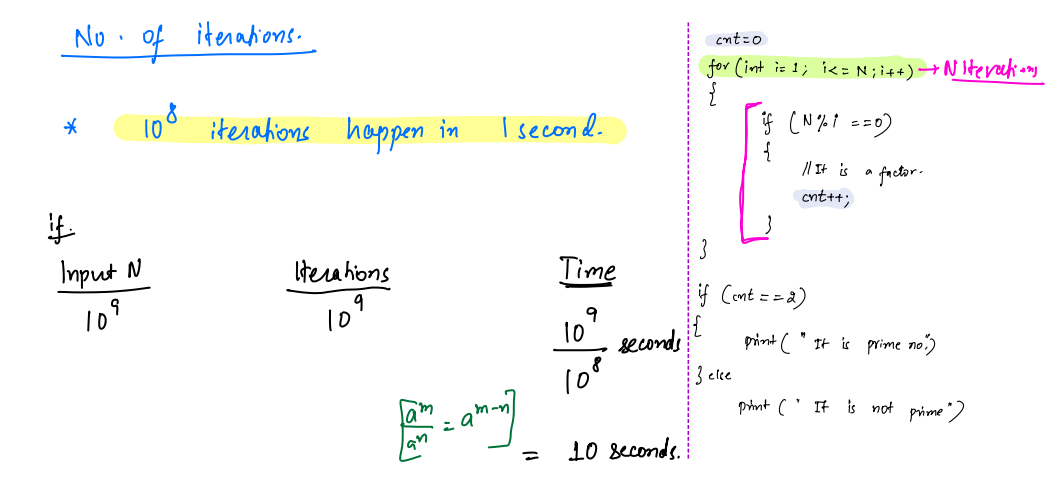 No. of iterations.
* 10^8 iterations happen in 1 second.
if.
Input N Iterations Time
10^9 10^9 10^9 / 10^8 seconds
[a^m / a^n = a^m-n]
= 10 seconds.
cnt=0
for (int i=1; i<=N; i++) → N Iterations
{
if (N%i ==0)
{
// It is a factor.
cnt++;
}
}
if (cnt ==2)
{
print ("It is prime no.")
} else
print ("It is not prime")